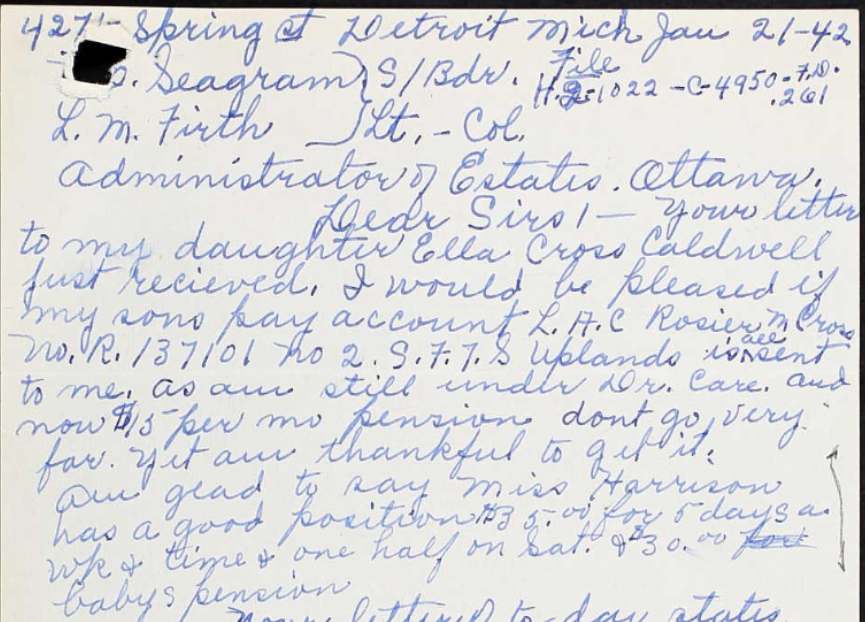 427 Spring st Detroit Mich Jan 21-42
Seagram } S/Bdr. File
H.Q. 1022-C-4950-F.D.
L. M. Firth } Lt.-Col. .261
Administrator of Estates. Ottawa.
Dear Sirs! — Your letter
to my daughter Ella Cross Caldwell
just recieved. I would be pleased if
my sons pay account L.A.C Rosier M Cross
No. R. 137101 No 2. S.F.T.S Uplands is all sent
to me. as am still under Dr. Care. and
now $15 per mo pension dont go very
far. Yet am thankful to get it.
Am glad to say Miss Harrison
has a good position $35.00 for 5 days a
wk & time & one half on Sat. & $30.00 for
babys pension
Your letter to-day states